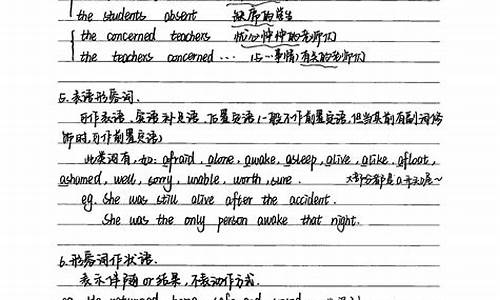 the students absent 缺席的学生
the concerned teachers 忧心忡忡的老师们
the teachers concerned ... (与…事情)有关的老师们
5. 表语形容词.
可作表语、宾语补足语、后置定语(一般不作前置定语,但当其前有副词修
饰时,可作前置定语)
此类词有,如: afraid, alone, awake, asleep, alive, alike, afloat,
ashamed, well, sorry, unable, worth, sure. 大部分都是a开头的~
eg. She was still alive after the accident.
She was the only person awake that night.
6. 形容词作状语.
表示伴随 or 结果,不表动作方式.
eg. He returned home, safe and